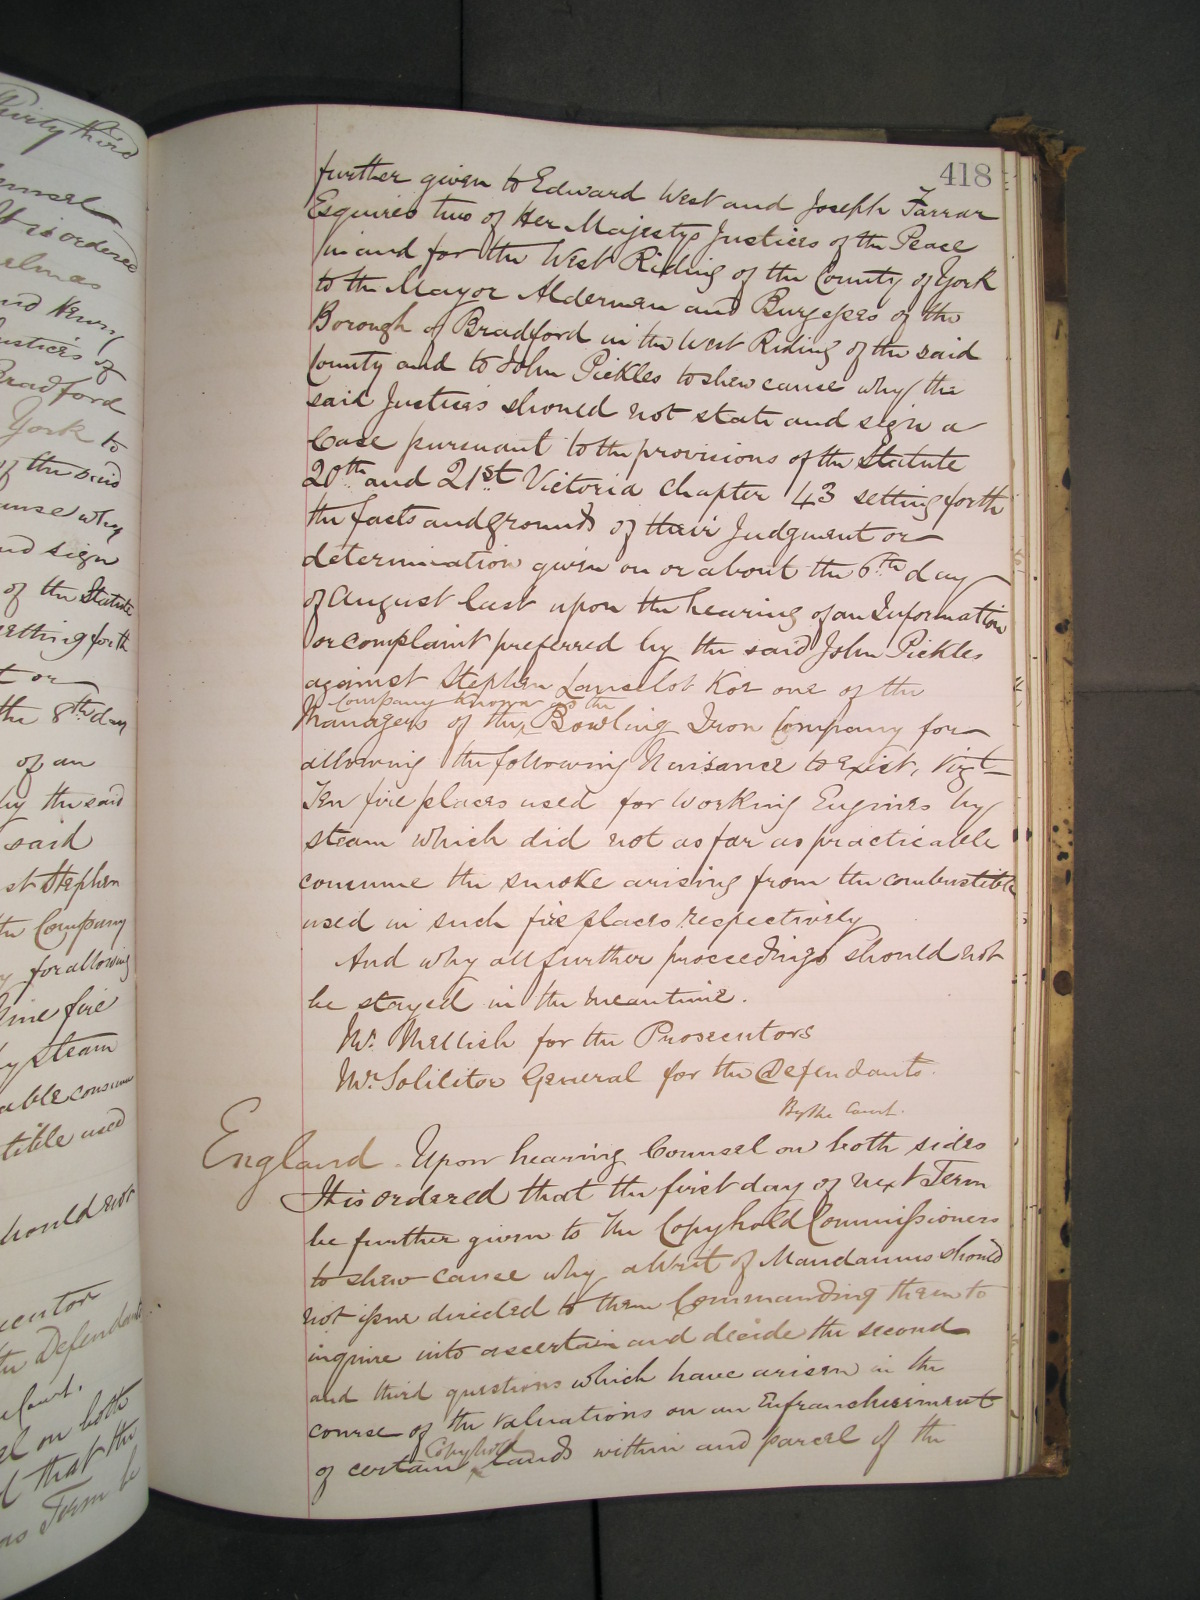 418
further given to Edward West and Joseph Farrar
Esquires two of Her Majestys Justices of the Peace
in and for the West Riding of the County of York
to the Mayor Aldermen and Burgesses of the
Borough of Bradford in the West Riding of the said
County and to John Pickles to shew cause why the
said Justices should not state and sign a
Case pursuant to the provisions of the Statute
20th and 21st Victoria Chapter 43 setting forth
the facts and grounds of their Judgment or
determination given on or about the 6th day
of August last upon the hearing of an Information
or complaint preferred by the said John Pickles
against Stephen Lancelot Kor one of the
Company known as the
Managers of the Bowling Iron Company for
allowing the following Nuisance to exist, vizt
Ten fire places used for working Engines by
steam which did not as far as practicable
consume the smoke arising from the combustible
used in such fire places respectively
And why all further proceedings should not
be stayed in the meantime.
Mr. Mellish for the Prosecutors
Mr. Solicitor General for the Defendants.
By the Court.
England. Upon hearing Counsel on both sides
It is ordered that the first day of next Term
be further given to the Copyhold Commissioners
to shew cause why a Writ of Mandamus should
not issue directed to them Commanding them to
inquire into ascertain and decide the second
and third questions which have arisen in the
course of the valuations on an Enfranchisement
Copyhold
of certain lands within and parcel of the
Thirty third
It is ordered
and Henry
Justices of
Bradford
York to
of the said
cause why
and sign
of the Statute
setting forth
t or
the 8th day
of an
by the said
said
st Stephen
the Company
for allowing
Nine fire
by steam
able consume
tible used
should not
the Defendants
Court.
on both
that the
Term be